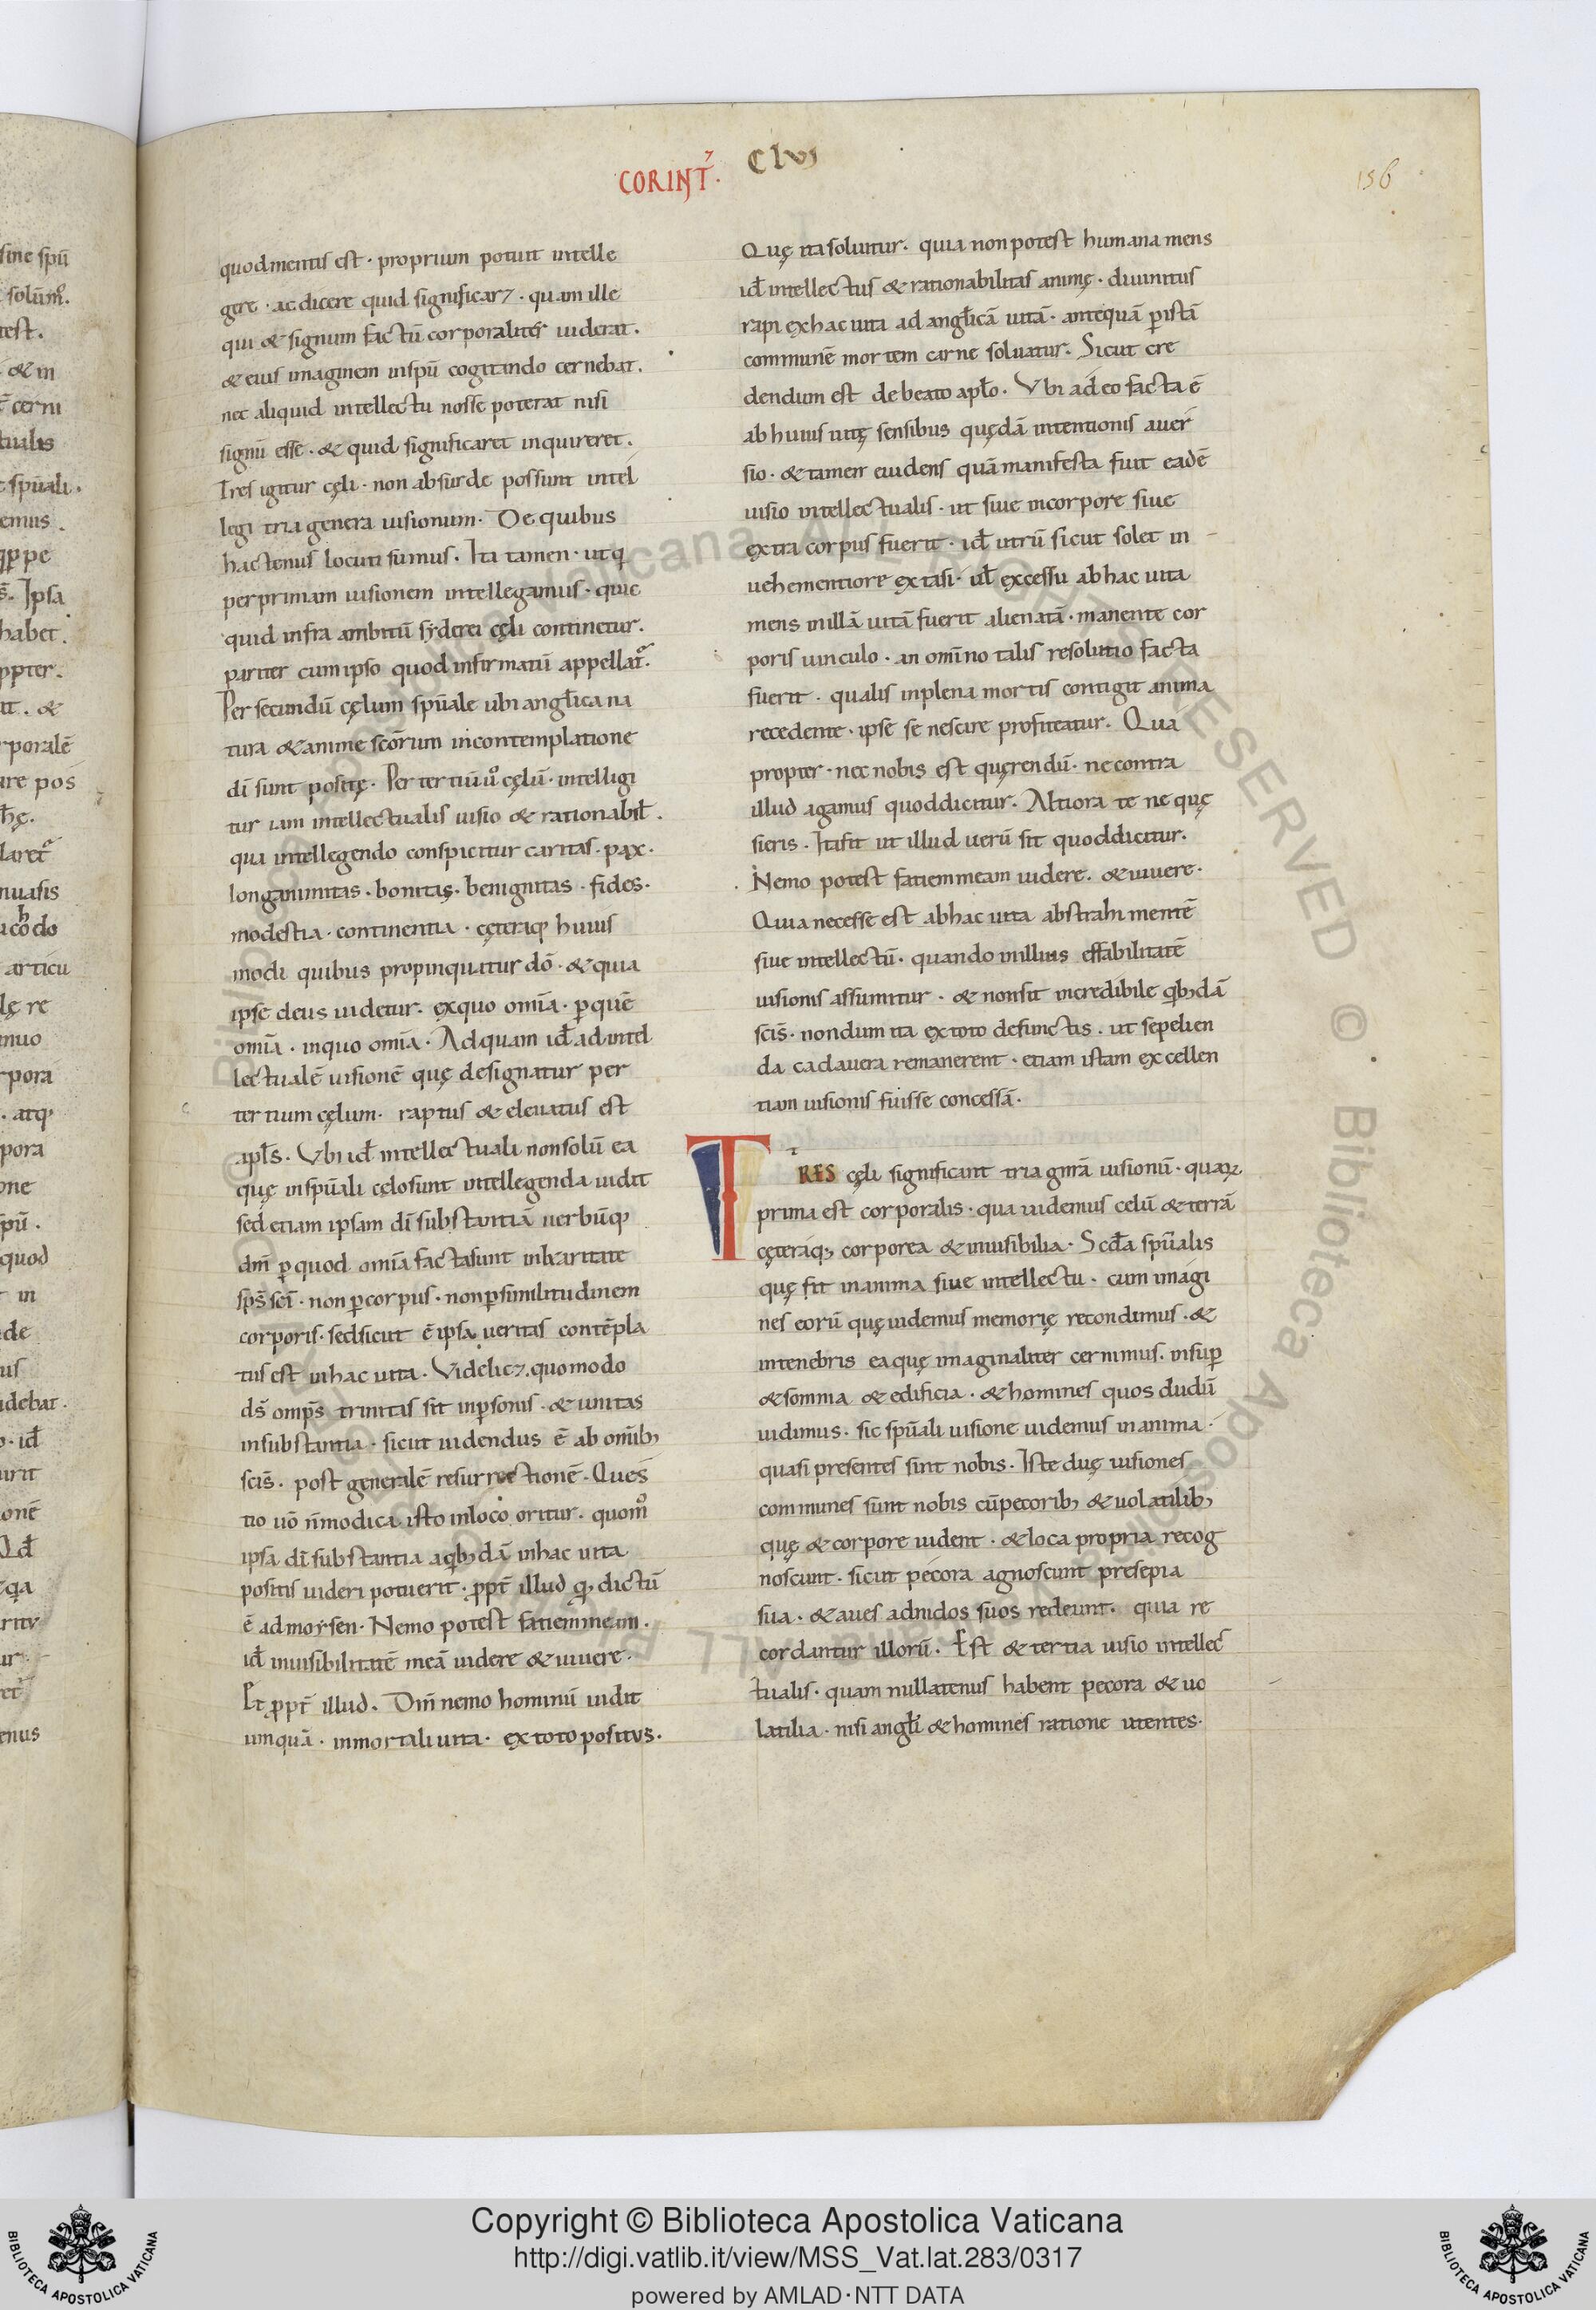 CORINT⁊. Clvi
156
sine spū
solūm̄.
test.
& in
cerni
tualis
spūali.
emus.
ippe
Ipsa
habet.
ppter.
it. &
rporalē
are pos
hę.
laret
nuasis
do
articu
lę re
inuo
rpora
atq;
pora
one
spū.
quod
in
de
us
idebat.
id̄
urit
onē
Qd̄
ritv
ur
enus
quod mentis est · proprium potuit intelle
gere · ac dicere quid significar⁊ · quam ille
qui & signum factū corporaliter uiderat.
& eius imaginem in spū cogitando cernebat.
nec aliquid intellectu nosse poterat nisi
signū esse · & quid significaret inquireret.
Tres igitur cęli · non absurde possunt intel
legi tria genera uisionum. De quibus
hactenus locuti sumus. Ita tamen · ut q̄
per primam uisionem intellegamus · quic
quid infra ambitū syderei cęli continetur.
pariter cum ipso quod infirmatū appellat̄.
Per secundū cęlum spūale ubi angl̄ica na
tura & anime scōrum in contemplatione
dī sunt positę. Per tertiū ů cęlū · intelligi
tur iam intellectualis uisio & rationabil̄.
qua intellegendo conspicitur caritas · pax.
longanimitas · bonitas · benignitas · fides.
modestia · continentia · cęteraq; huius
modi quibus propinquatur dō · & quia
ipse deus uidetur. ex quo omīa · p̱ quē
omīa · in quo omīa. Ad quam id̄ ad intel
lectualē uisionē quę designatur per
tertium cęlum. raptus & eleuatus est
apl̄s. Vbi id̄ intellectuali non solū ea
quę in spūali cęlo sunt intellegenda uidit
sed etiam ipsam dī substantiā uerbūq;
dm̄ p̱ quod omīa facta sunt in karitate
sps̄ scī · non p̱ corpus · non p̱ similitudinem
corporis · sed sicut ē ipsa ueritas contēpla
tus est in hac uita. Videlic⁊ quomodo
ds̄ omps̄ trinitas sit in p̱sonis · & unitas
in substantia · sicut uidendus ē ab omīb;
scīs · post generalē resurrectionē. Ques
tio uō n̄ modica isto in loco oritur. quom̊
ipsa dī substantia a qb;dā in hac uita
positis uideri potuerit · ppt̄ illud q; dictū
ē ad moysen. Nemo potest fatiem meam.
id̄ inuisibilitatē meā uidere & uiuere.
Et ppt̄ illud. Dm̄ nemo hominū uidit
umquā · in mortali uita · ex toto positvs.
Quę ita soluitur · quia non potest humana mens
id̄ intellectus & rationabilitas animę · diuinitus
rapi ex hac uita ad angl̄icā uitā · antequā p̱ istā
communē mortem carne soluatur. Sicut cre
dendum est de beato apl̄o. Vbi adeo facta ē
ab huius uitę sensibus quędā intentionis auer
sio · & tamen euidens quā manifesta fuit eadē
uisio intellectualis · ut siue in corpore siue
extra corpus fuerit · id̄ utrū sicut solet in
uehementiore extasi · ul̄ excessu ab hac uita
mens in illā uitā fuerit alienatā · manente cor
poris uinculo · an omīno talis resolutio facta
fuerit · qualis in plena mortis contigit anima
recedente · ipse se nescire profiteatur. Qua
propter · nec nobis est quęrendū · ne contra
illud agamus quod dicitur. Altiora te ne quę
sieris. Ita fit ut illud uerū sit quod dicitur.
Nemo potest fatiem meam uidere · & uiuere.
Quia necesse est ab hac uita abstrahi mentē
siue intellectū · quando in illius effabilitatē
uisionis assumitur · & non sit incredibile qb;dā
scīs · nondum ita ex toto defunctis · ut sepelien
da cadauera remanerent · etiam istam excellen
tiam uisionis fuisse concessā.
TRES cęli significant tria gn̄ra uisionū · quaꝝ
prima est corporalis · qua uidemus celū & terrā
cęteraq; corporea & inuisibilia. Scd̄a spūalis
quę fit in anima siue intellectu · cum imagi
nes eorū quę uidemus memorię recondimus · &
in tenebris ea quę imaginaliter cernimus · insup̱
& somnia & edificia · & homines quos dudū
uidimus · sic spūali uisione uidemus in anima.
quasi presentes sint nobis. Iste duę uisiones
communes sunt nobis cū pecorib; & uolatilib;
quę & corpore uident · & loca propria recog
noscunt · sicut pecora agnoscunt presepia
sua · & aues ad nidos suos redeunt · quia re
cordantur illorū. Est & tertia uisio intellec
tualis · quam nullatenus habent pecora & uo
latilia · nisi angl̄i & homines ratione utentes.
© Biblioteca Apostolica Vaticana ALL RIGHTS RESERVED © Biblioteca Apostolica Vaticana ALL RIGHTS RESERVED
Copyright © Biblioteca Apostolica Vaticana
http://digi.vatlib.it/view/MSS_Vat.lat.283/0317
powered by AMLAD·NTT DATA
BIBLIOTECA APOSTOLICA VATICANA
BIBLIOTECA APOSTOLICA VATICANA